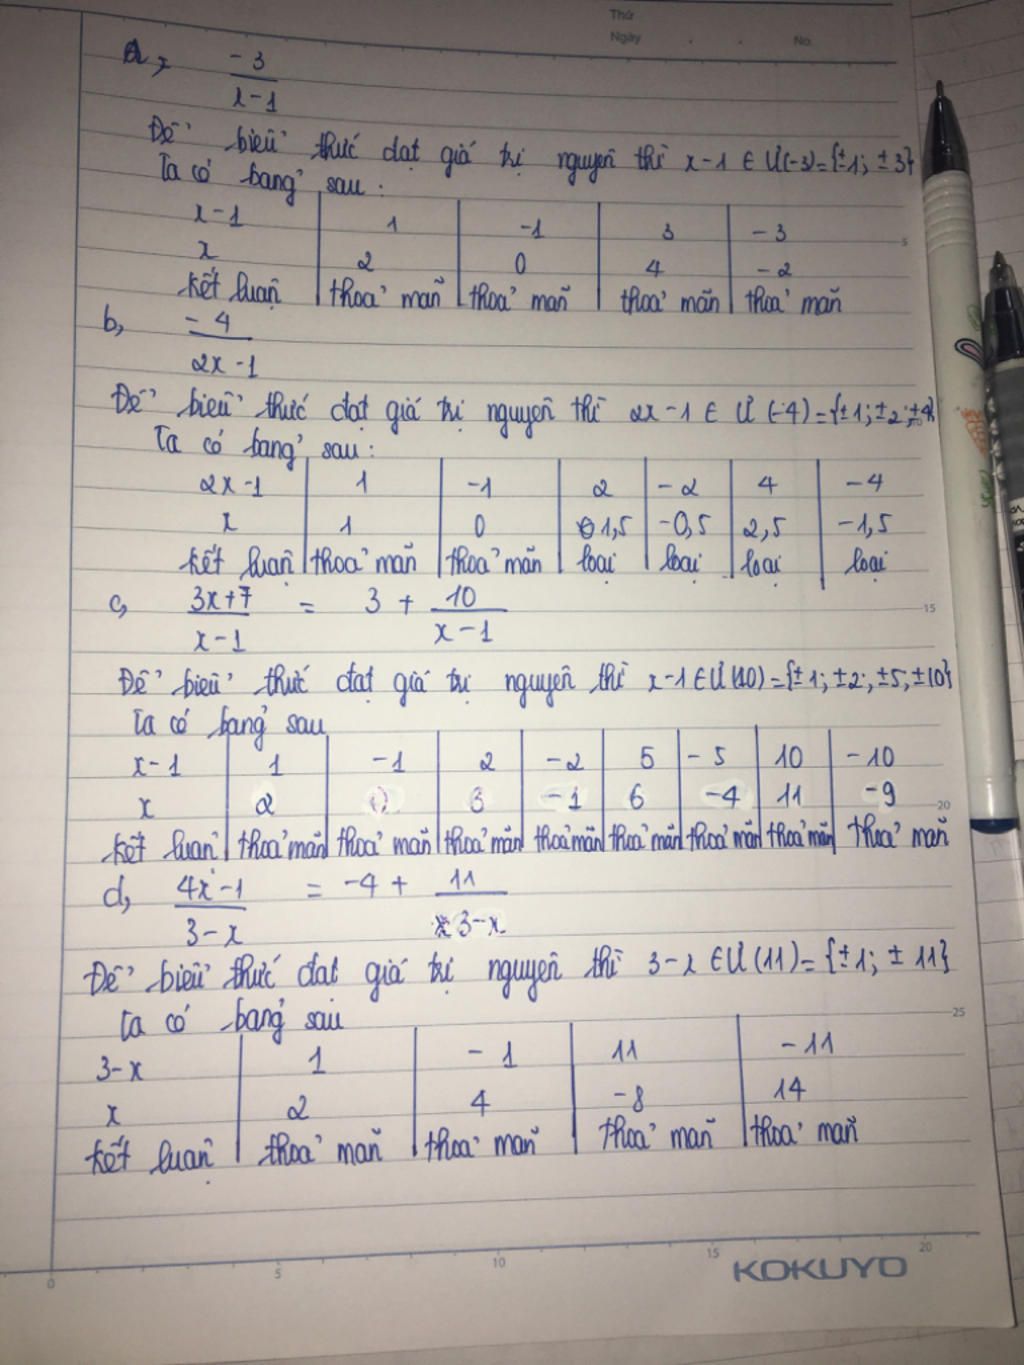 Thứ
Ngày . . No.
a, -3
x-1
Để biểu thức đạt giá trị nguyên thì x-1 ∈ Ư(-3)={±1; ±3}
Ta có bảng sau:
x-1 1 -1 3 -3
x 2 0 4 -2
kết luận thoả mãn thoả mãn thoả mãn thoả mãn
b, -4
2x-1
Để biểu thức đạt giá trị nguyên thì 2x-1 ∈ Ư(-4)={±1;±2;±4}
Ta có bảng sau:
2x-1 1 -1 2 -2 4 -4
x 1 0 1,5 -0,5 2,5 -1,5
kết luận thoả mãn thoả mãn loại loại loại loại
c, 3x+7 = 3 + 10
x-1 x-1
15
Để biểu thức đạt giá trị nguyên thì x-1 ∈ Ư(10)={±1; ±2; ±5; ±10}
Ta có bảng sau
x-1 1 -1 2 -2 5 -5 10 -10
x 2 0 3 -1 6 -4 11 -9
20
kết luận thoả mãn thoả mãn thoả mãn thoả mãn thoả mãn thoả mãn thoả mãn thoả mãn
d, 4x-1 = -4 + 11
3-x 3-x
Để biểu thức đạt giá trị nguyên thì 3-x ∈ Ư(11)={±1; ±11}
25
Ta có bảng sau
3-x 1 -1 11 -11
x 2 4 -8 14
kết luận thoả mãn thoả mãn thoả mãn thoả mãn
0 5 10 15 20
KOKUYO